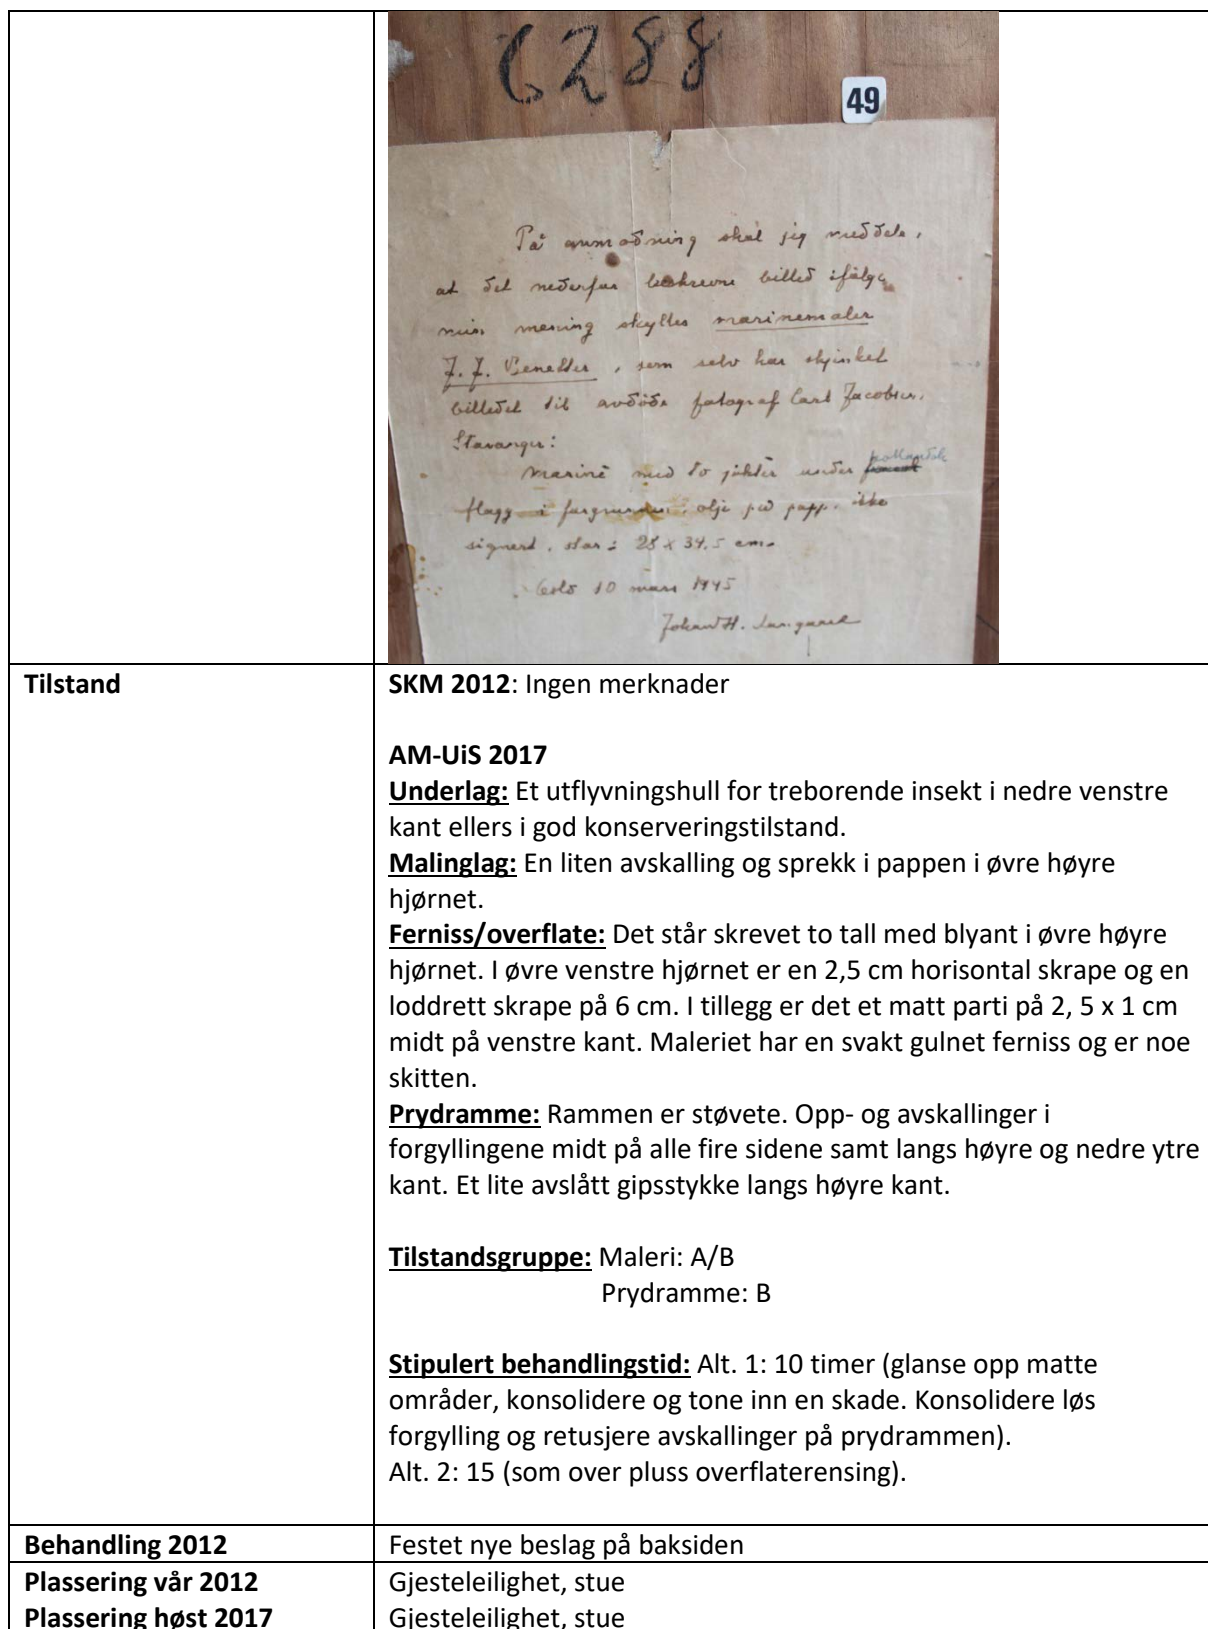 6288
49
På anmodning skal jeg meddele,
at det nedenfor beskrevne billed ifølge
min mening skyldes marinemaler
J. J. Bennetter, som selv har skjenket
billedet til avdøde fotograf Carl Jacobsen,
Stavanger:
Marine med to jakter under
flagg i forgrunden, olje på papp, ikke
signert, stør: 28 x 34,5 cm.
Oslo 10 mars 1945
Johan H. Langaard
Tilstand
SKM 2012: Ingen merknader
AM-UiS 2017
Underlag: Et utflyvningshull for treborende insekt i nedre venstre
kant ellers i god konserveringstilstand.
Malinglag: En liten avskalling og sprekk i pappen i øvre høyre
hjørnet.
Ferniss/overflate: Det står skrevet to tall med blyant i øvre høyre
hjørnet. I øvre venstre hjørnet er en 2,5 cm horisontal skrape og en
loddrett skrape på 6 cm. I tillegg er det et matt parti på 2, 5 x 1 cm
midt på venstre kant. Maleriet har en svakt gulnet ferniss og er noe
skitten.
Prydramme: Rammen er støvete. Opp- og avskallinger i
forgyllingene midt på alle fire sidene samt langs høyre og nedre ytre
kant. Et lite avslått gipsstykke langs høyre kant.
Tilstandsgruppe: Maleri: A/B
Prydramme: B
Stipulert behandlingstid: Alt. 1: 10 timer (glanse opp matte
områder, konsolidere og tone inn en skade. Konsolidere løs
forgylling og retusjere avskallinger på prydrammen).
Alt. 2: 15 (som over pluss overflaterensing).
Behandling 2012 Festet nye beslag på baksiden
Plassering vår 2012 Gjesteleilighet, stue
Plassering høst 2017 Gjesteleilighet, stue